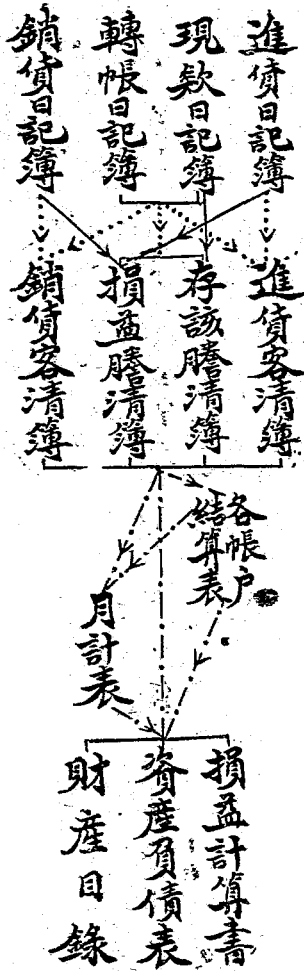 進貨日記簿
現款日記簿
轉帳日記簿
銷貨日記簿
進貨客清簿
存該謄清簿
損益謄清簿
銷貨客清簿
各帳户
結算表
月計表
損益計算書
資產負債表
財產目錄